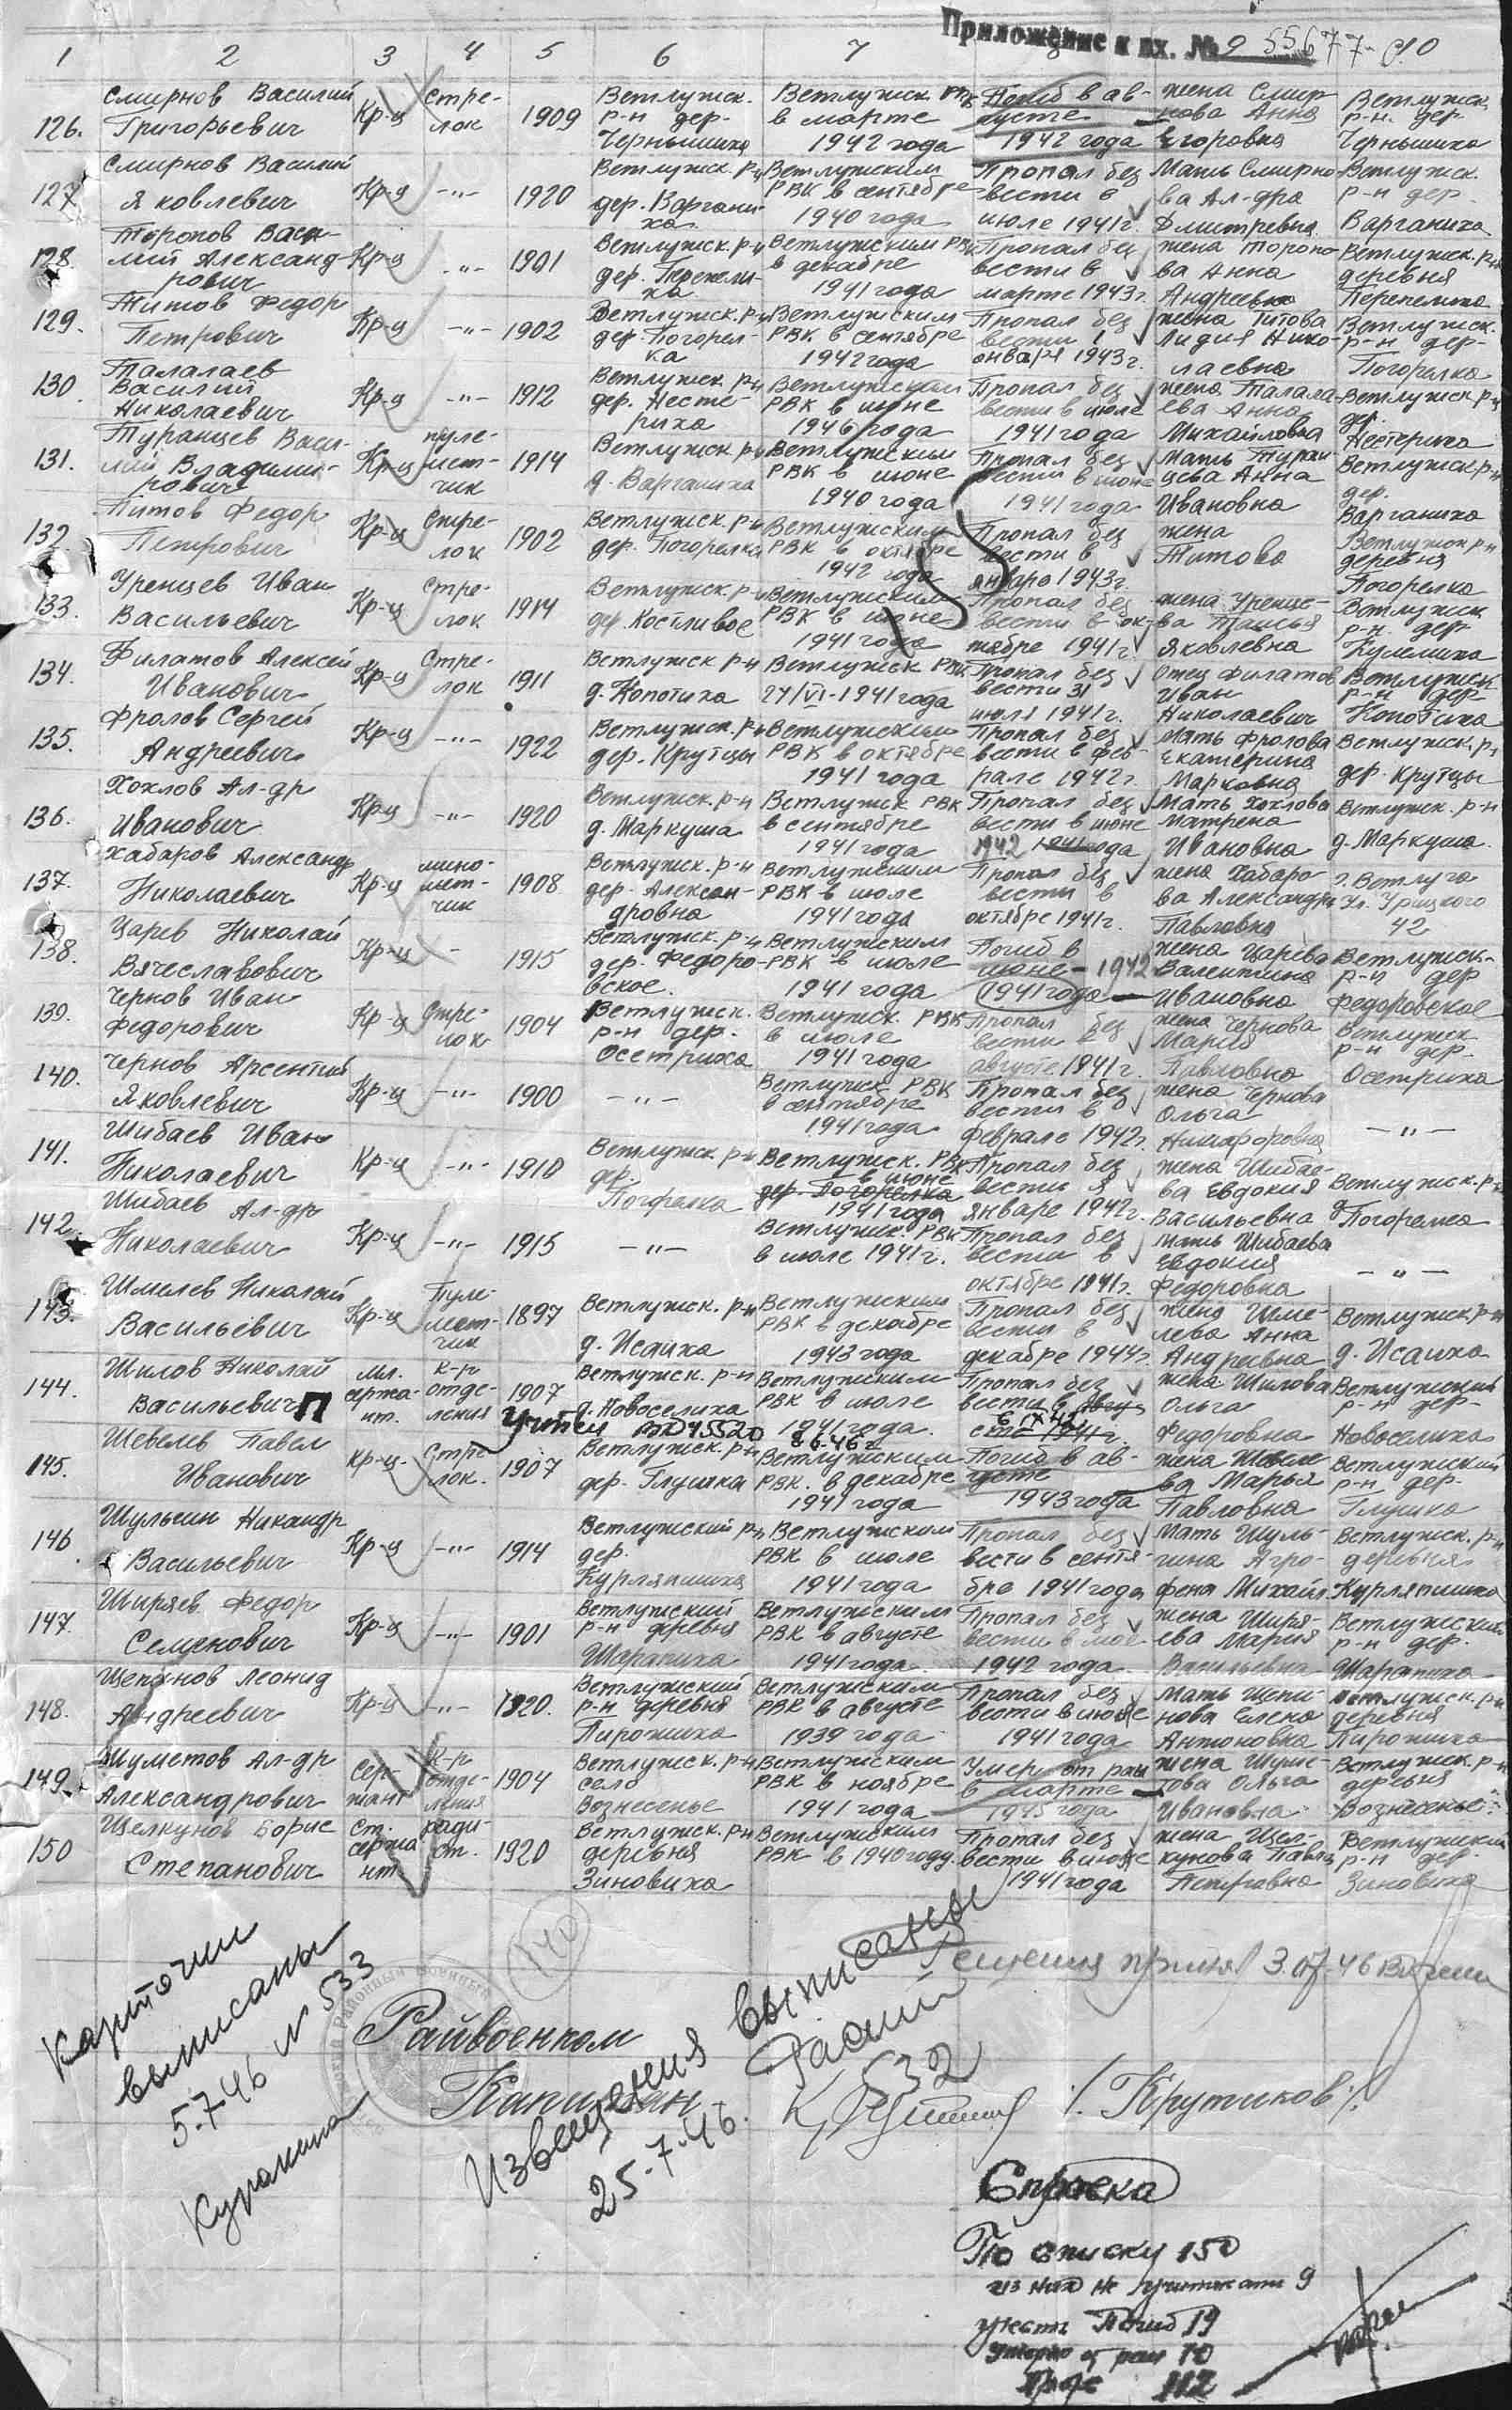 Приложение к вх. № 55677-с/0
1 2 3 4 5 6 7
126. Смирнов Василий Григорьевич Кр-ц Стре-лок 1909 Ветлужск. р-н дер. Чернышиха Ветлужск РВК в марте 1942 года Погиб в ав-густе 1942 года жена Смир-нова Анна Егоровна Ветлужск. р-н. дер. Чернышиха
127 Смирнов Василий Яковлевич Кр-ц -"- 1920 Ветлужск. р-н дер.Варгани-ха Ветлужским РВК в сентябре 1940 года Пропал без вести в июле 1941 г. Мать Смирно-ва Ал-дра Дмитревна Ветлужск. р-н дер. Варганиха
128. Торопов Васи-лий Александ-рович Кр-ц -"- 1901 Ветлужск. р-н дер. Перепели-ха Ветлужским РВК в декабре 1941 года Пропал без вести в марте 1943 г. жена Торопо-ва Анна Андреевна Ветлужск. р-н деревня Перепелиха
129. Титов Федор Петрович Кр-ц -"- 1902 Ветлужск. р-н дер. Погорел-ка Ветлужским РВК в сентябре 1942 года Пропал без вести в января 1943 г. жена Титова Лидия Нико-лаевна Ветлужск. р-н дер- Погорелка
130. Талалаев Василий Николаевич Кр-ц -"- 1912 Ветлужск. р-н дер. Несте-риха Ветлужским РВК в июне 1946 года Пропал без вести в июле 1941 года жена Талала-ева Анна Михайловна Ветлужск р-н дер. Нестериха
131. Туранцев Васи-лий Владими-рович Кр-ц пуле-мет-чик 1914 Ветлужск р-н д. Варганиха Ветлужским РВК в июне 1940 года Пропал без вести в июне 1941 года Мать Туран-цева Анна Ивановна Ветлужск р-н дер. Варганиха
132. Титов Федор Петрович Кр-ц Стре-лок 1902 Ветлужск. р-н дер. Погорелка Ветлужским РВК в октябре 1942 года Пропал без вести в январе 1943 г. жена Титова Ветлужск р-н деревня Погорелка
133. Уренцев Иван Васильевич Кр-ц Стре-лок 1914 Ветлужск. р-н дер. Костливое Ветлужским РВК в июне 1941 года Пропал без вести в ок-тябре 1941 г. жена Уренце-ва Таисья Яковлевна Ветлужск р-н. дер Кулемиха
134. Филатов Алексей Иванович Кр-ц Стре-лок 1911 Ветлужск р-н д. Копотиха Ветлужск РВК 24/VI-1941 года Пропал без вести 31 июля 1941 г. Отец Филатов Иван Николаевич Ветлужск р-н дер- Копотиха
135. Фролов Сергей Андреевич Кр-ц -"- 1922 Ветлужск. р-н дер. Крутцы Ветлужским РВК в октябре 1941 года Пропал без вести в фев-рале 1942 г. Мать Фролова Екатерина Марковна Ветлужск. р-н дер. Крутцы
136. Хохлов Ал-др Иванович Кр-ц -"- 1920 Ветлужск. р-н д. Маркуша Ветлужск РВК в сентябре 1941 года Пропал без вести в июне 1942 1941 года Мать Хохлова Матрена Ивановна Ветлужск. р-н д. Маркуша.
137. Хабаров Александр Николаевич Кр-ц мино-мет-чик 1908 Ветлужск. р-н дер. Алексан-дровна Ветлужским РВК в июле 1941 года Пропал без вести в октябре 1941 г. жена Хабаро-ва Александра Павловна г. Ветлуга Ул. Урицкого 42
138. Царев Николай Вячеславович Кр-ц - 1915 Ветлужск. р-н дер. Федоро-вское. Ветлужским РВК в июле 1941 года Погиб в июне - 1942 1941 года жена Царева Валентина Ивановна Ветлужск- р-н дер Федоровское
139. Чернов Иван Федорович Кр-ц Стре-лок 1904 Ветлужск. р-н дер. Осетриха Ветлужск. РВК в июле 1941 года Пропал без вести в августе 1941 г. жена Чернова Мария Павловна Ветлужск р-н дер- Осетриха
140. Чернов Арсентий Яковлевич Кр-ц -"- 1900 -"- Ветлужск РВК в сентябре 1941 года Пропал без вести в феврале 1942 г. жена Чернова Ольга Никифоровна -"-
141. Шибаев Иван Николаевич Кр-ц -"- 1910 Ветлужск. р-н дер. Погорелка Ветлужск. РВК в июне дер. Погорелка 1941 года Пропал без вести в январе 1942 г. жена Шибае-ва Евдокия Васильевна Ветлужск. р-н д Погорелка
142. Шибаев Ал-др Николаевич Кр-ц -"- 1915 -"- Ветлужск. РВК в июле 1941 г. Пропал без вести в октябре 1941 г. мать Шибаева Евдокия Федоровна -"-
143. Шмелев Николай Васильевич Кр-ц Пуле-мет-чик 1897 Ветлужск. р-н д. Исаиха Ветлужским РВК в декабре 1943 года Пропал без вести в декабре 1944 г. жена Шме-лева Анна Андреевна Ветлужск. р-н д. Исаиха
144. Шилов Николай Васильевич П мл. сержа-нт. к-р отде-ления 1907 Ветлужск. р-н д. Новоселиха Ветлужским РВК в июле 1941 года. Пропал без вести в авгу-сте 1941 г. 6 IX 42 жена Шилова Ольга Федоровна Ветлужский р-н дер- Новоселиха
Учтен 45520 8 6-46 г
145. Шевелев Павел Иванович Кр-ц- Стре-лок. 1907 Ветлужск. р-н дер. Глушка Ветлужским РВК. в декабре 1941 года Погиб в ав-густе 1943 года жена Шевеле-ва Марья Павловна Ветлужский р-н дер. Глушка
146. Шульгин Никандр Васильевич Кр-ц -"- 1914 Ветлужский р-н дер. Курляпиха Ветлужским РВК в июле 1941 года Пропал без вести в сентя-бре 1941 года Мать Шуль-гина Агро-фена Михайл Ветлужск. р-н деревня
147. Ширяев Федор Семенович Кр-ц -"- 1901 Ветлужский р-н деревня Шарапиха Ветлужским РВК в августе 1941 года Пропал без вести в мае 1942 года жена Ширя-ева Мария Васильевна Ветлужский р-н дер. Шарапиха
148. Щепинов Леонид Андреевич Кр-ц -"- 1920. Ветлужский р-н деревня Пирожиха Ветлужским РВК в августе 1939 года Пропал без вести в июне 1941 года Мать Щепи-нова Елена Антоновна Ветлужск. р-н деревня Пирожиха
149. Шуметов Ал-др Александрович Сер-жант к-р отде-ления 1904 Ветлужск. р-н село Вознесенье Ветлужским РВК в ноябре 1941 года Умер от ран в марте 1945 года жена Шуме-това Ольга Ивановна Ветлужск. р-н деревня Вознесенье
150 Щелкунов Борис Степанович ст. сержа нт ради-ст. 1920 Ветлужск. р-н деревня Зиновиха Ветлужским РВК в 1940 году. Пропал без вести в июне 1941 года жена Щел-кунова Павла Петровна Ветлужский р-н дер. Зиновиха
140
Карточки
выписаны
5.7-46 N 533
Куракина
Райвоенком
Капитан
/Крутиков/
Извещения выписаны
25.7.46.
532
Решения принял 3.07.46
Справка
По списку 150
из них не учитывать 9
учесть Погиб 19
Умерло от ран 10
Проп 112